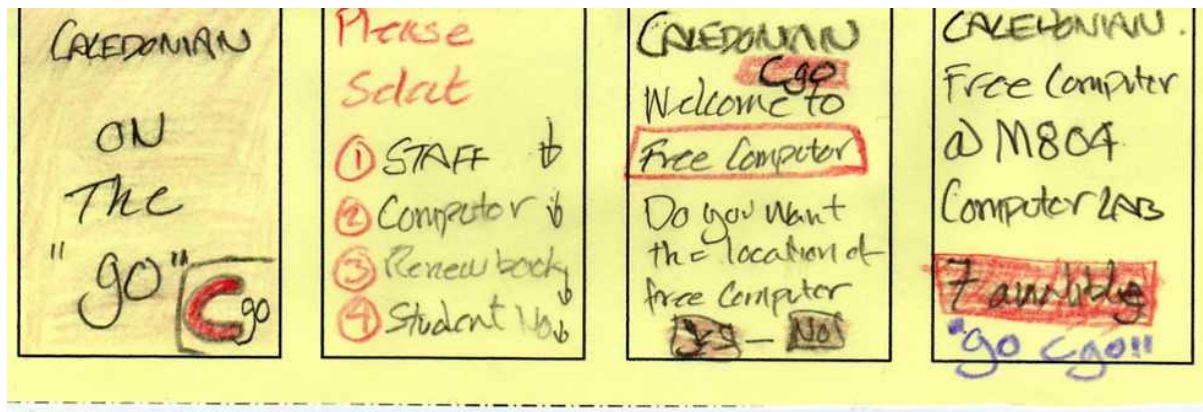 CALEDONIAN
ON
The
"go"
Cgo
Please
Select
① STAFF
② Computer
③ Renew book
④ Student No
CALEDONIAN
Cgo
Welcome to
Free Computer
Do you want
the location of
free Computer
Yes - No
CALEDONIAN.
Free Computer
@ M804
Computer LAB
7 availible
"go cgo"